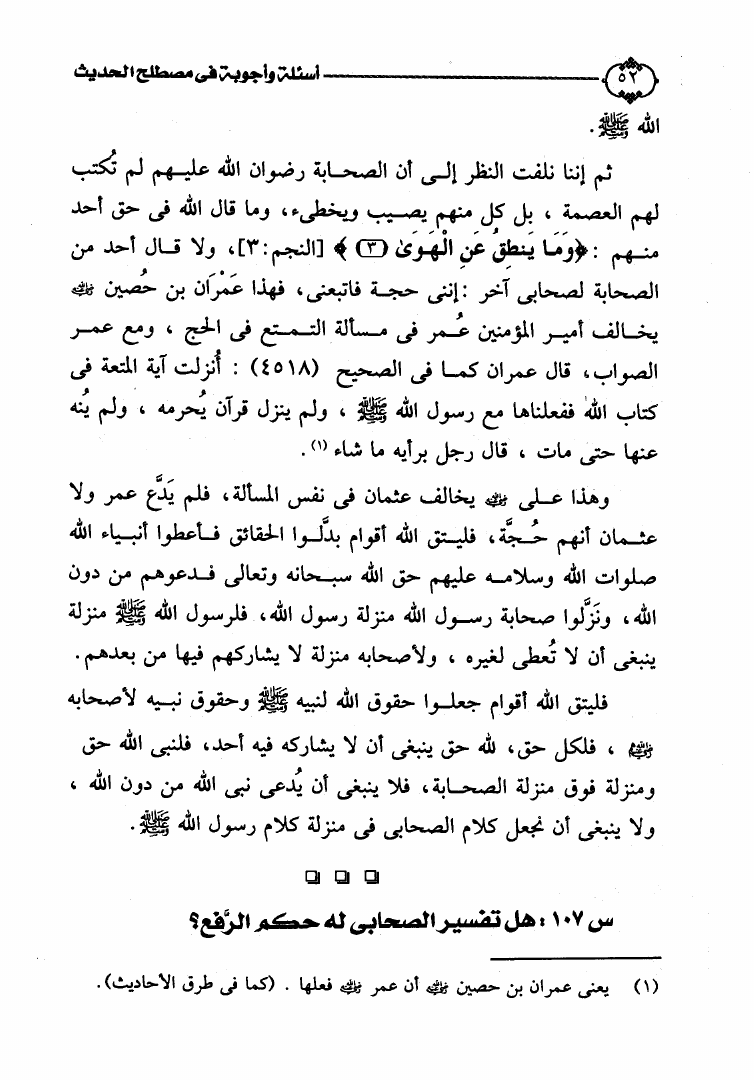 ٥٢ أسئلة وأجوبة فى مصطلح الحديث
الله ﷺ.
ثم إننا نلفت النظر إلى أن الصحابة رضوان الله عليهم لم تُكتب
لهم العصمة ، بل كل منهم يصيب ويخطىء، وما قال الله فى حق أحد
منهم : ﴿وَمَا يَنطِقُ عَنِ الْهَوَىٰ (٣)﴾ [النجم:٣]، ولا قال أحد من
الصحابة لصحابى آخر :إننى حجة فاتبعنى، فهذا عَمْرَان بن حُصين رضي الله عنه
يخالف أمير المؤمنين عُمر فى مسألة التمتع فى الحج ، ومع عمر
الصواب، قال عمران كما فى الصحيح (٤٥١٨) : أُنزلت آية المتعة فى
كتاب الله ففعلناها مع رسول الله ﷺ ، ولم ينزل قرآن يُحرمه ، ولم يُنه
عنها حتى مات ، قال رجل برأيه ما شاء (١).
وهذا على رضي الله عنه يخالف عثمان فى نفس المسألة، فلم يَدَّع عمر ولا
عثمان أنهم حُجَّة، فليتق الله أقوام بدَّلوا الحقائق فأعطوا أنبياء الله
صلوات الله وسلامه عليهم حق الله سبحانه وتعالى فدعوهم من دون
الله، ونَزَّلوا صحابة رسول الله منزلة رسول الله، فلرسول الله ﷺ منزلة
ينبغى أن لا تُعطى لغيره ، ولأصحابه منزلة لا يشاركهم فيها من بعدهم.
فليتق الله أقوام جعلوا حقوق الله لنبيه ﷺ وحقوق نبيه لأصحابه
رضي الله عنهم ، فلكل حق، لله حق ينبغى أن لا يشاركه فيه أحد، فلنبى الله حق
ومنزلة فوق منزلة الصحابة، فلا ينبغى أن يُدعى نبى الله من دون الله ،
ولا ينبغى أن نجعل كلام الصحابى فى منزلة كلام رسول الله ﷺ.
س ١٠٧ : هل تفسير الصحابى له حكم الرَّفع؟
(١) يعنى عمران بن حصين رضي الله عنه أن عمر رضي الله عنه فعلها . (كما فى طرق الأحاديث).